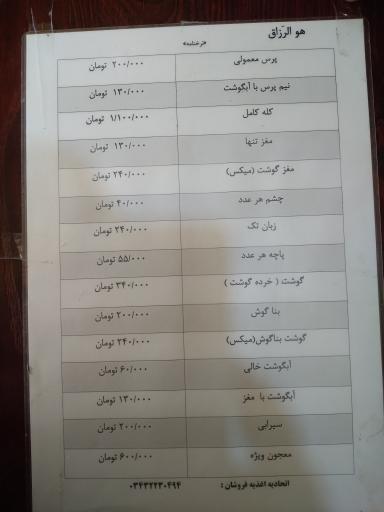 هو الرّزاق
«نرخنامه»
پرس معمولی ۲۰۰/۰۰۰ تومان
نیم پرس با آبگوشت ۱۳۰/۰۰۰ تومان
کله کامل ۱/۱۰۰/۰۰۰ تومان
مغز تنها ۱۳۰/۰۰۰ تومان
مغز گوشت (میکس) ۲۴۰/۰۰۰ تومان
چشم هر عدد ۴۰/۰۰۰ تومان
زبان تک ۲۴۰/۰۰۰ تومان
پاچه هر عدد ۵۵/۰۰۰ تومان
گوشت ( خرده گوشت ) ۳۴۰/۰۰۰ تومان
بنا گوش ۲۰۰/۰۰۰ تومان
گوشت بناگوش(میکس) ۲۴۰/۰۰۰ تومان
آبگوشت خالی ۶۰/۰۰۰ تومان
آبگوشت با مغز ۱۳۰/۰۰۰ تومان
سیرابی ۲۰۰/۰۰۰ تومان
معجون ویژه ۶۰۰/۰۰۰ تومان
اتحادیه اغذیه فروشان : ۰۳۴۳۲۲۳۰۴۹۴